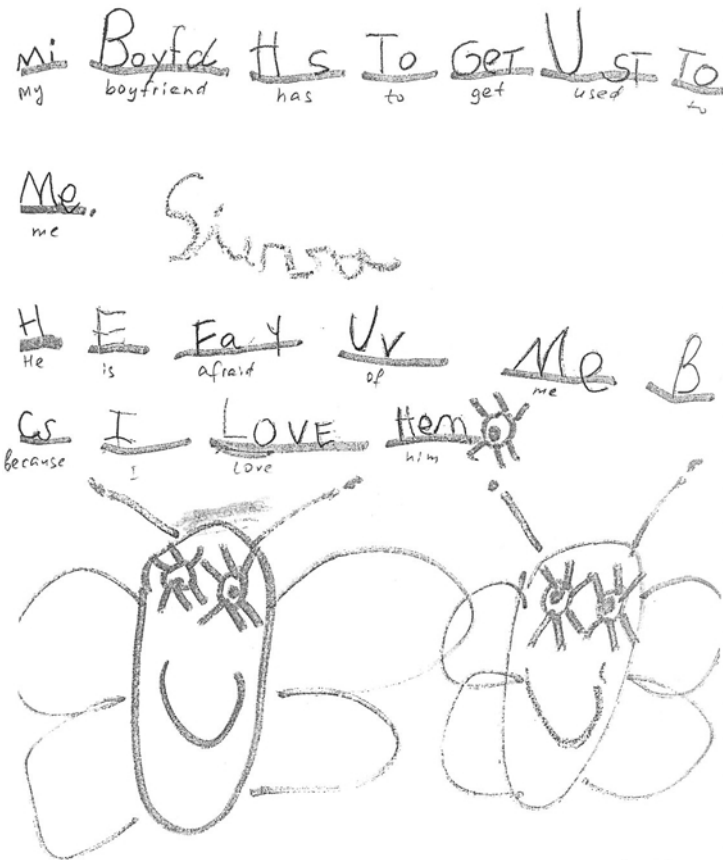 mi Boyfd H s To GeT U sT To
my boyfriend has to get used to
Me.
me
Sierra
H E Fa y Uv Me B
He is afraid of me
Cs I LOVE Hem
because I love him